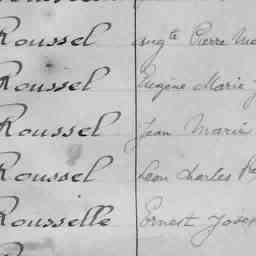 Roussel Augte Pierre Ma
Roussel Eugène Marie J
Roussel Jean Marie
Roussel Léon Charles
Rousselle Ernest Josep